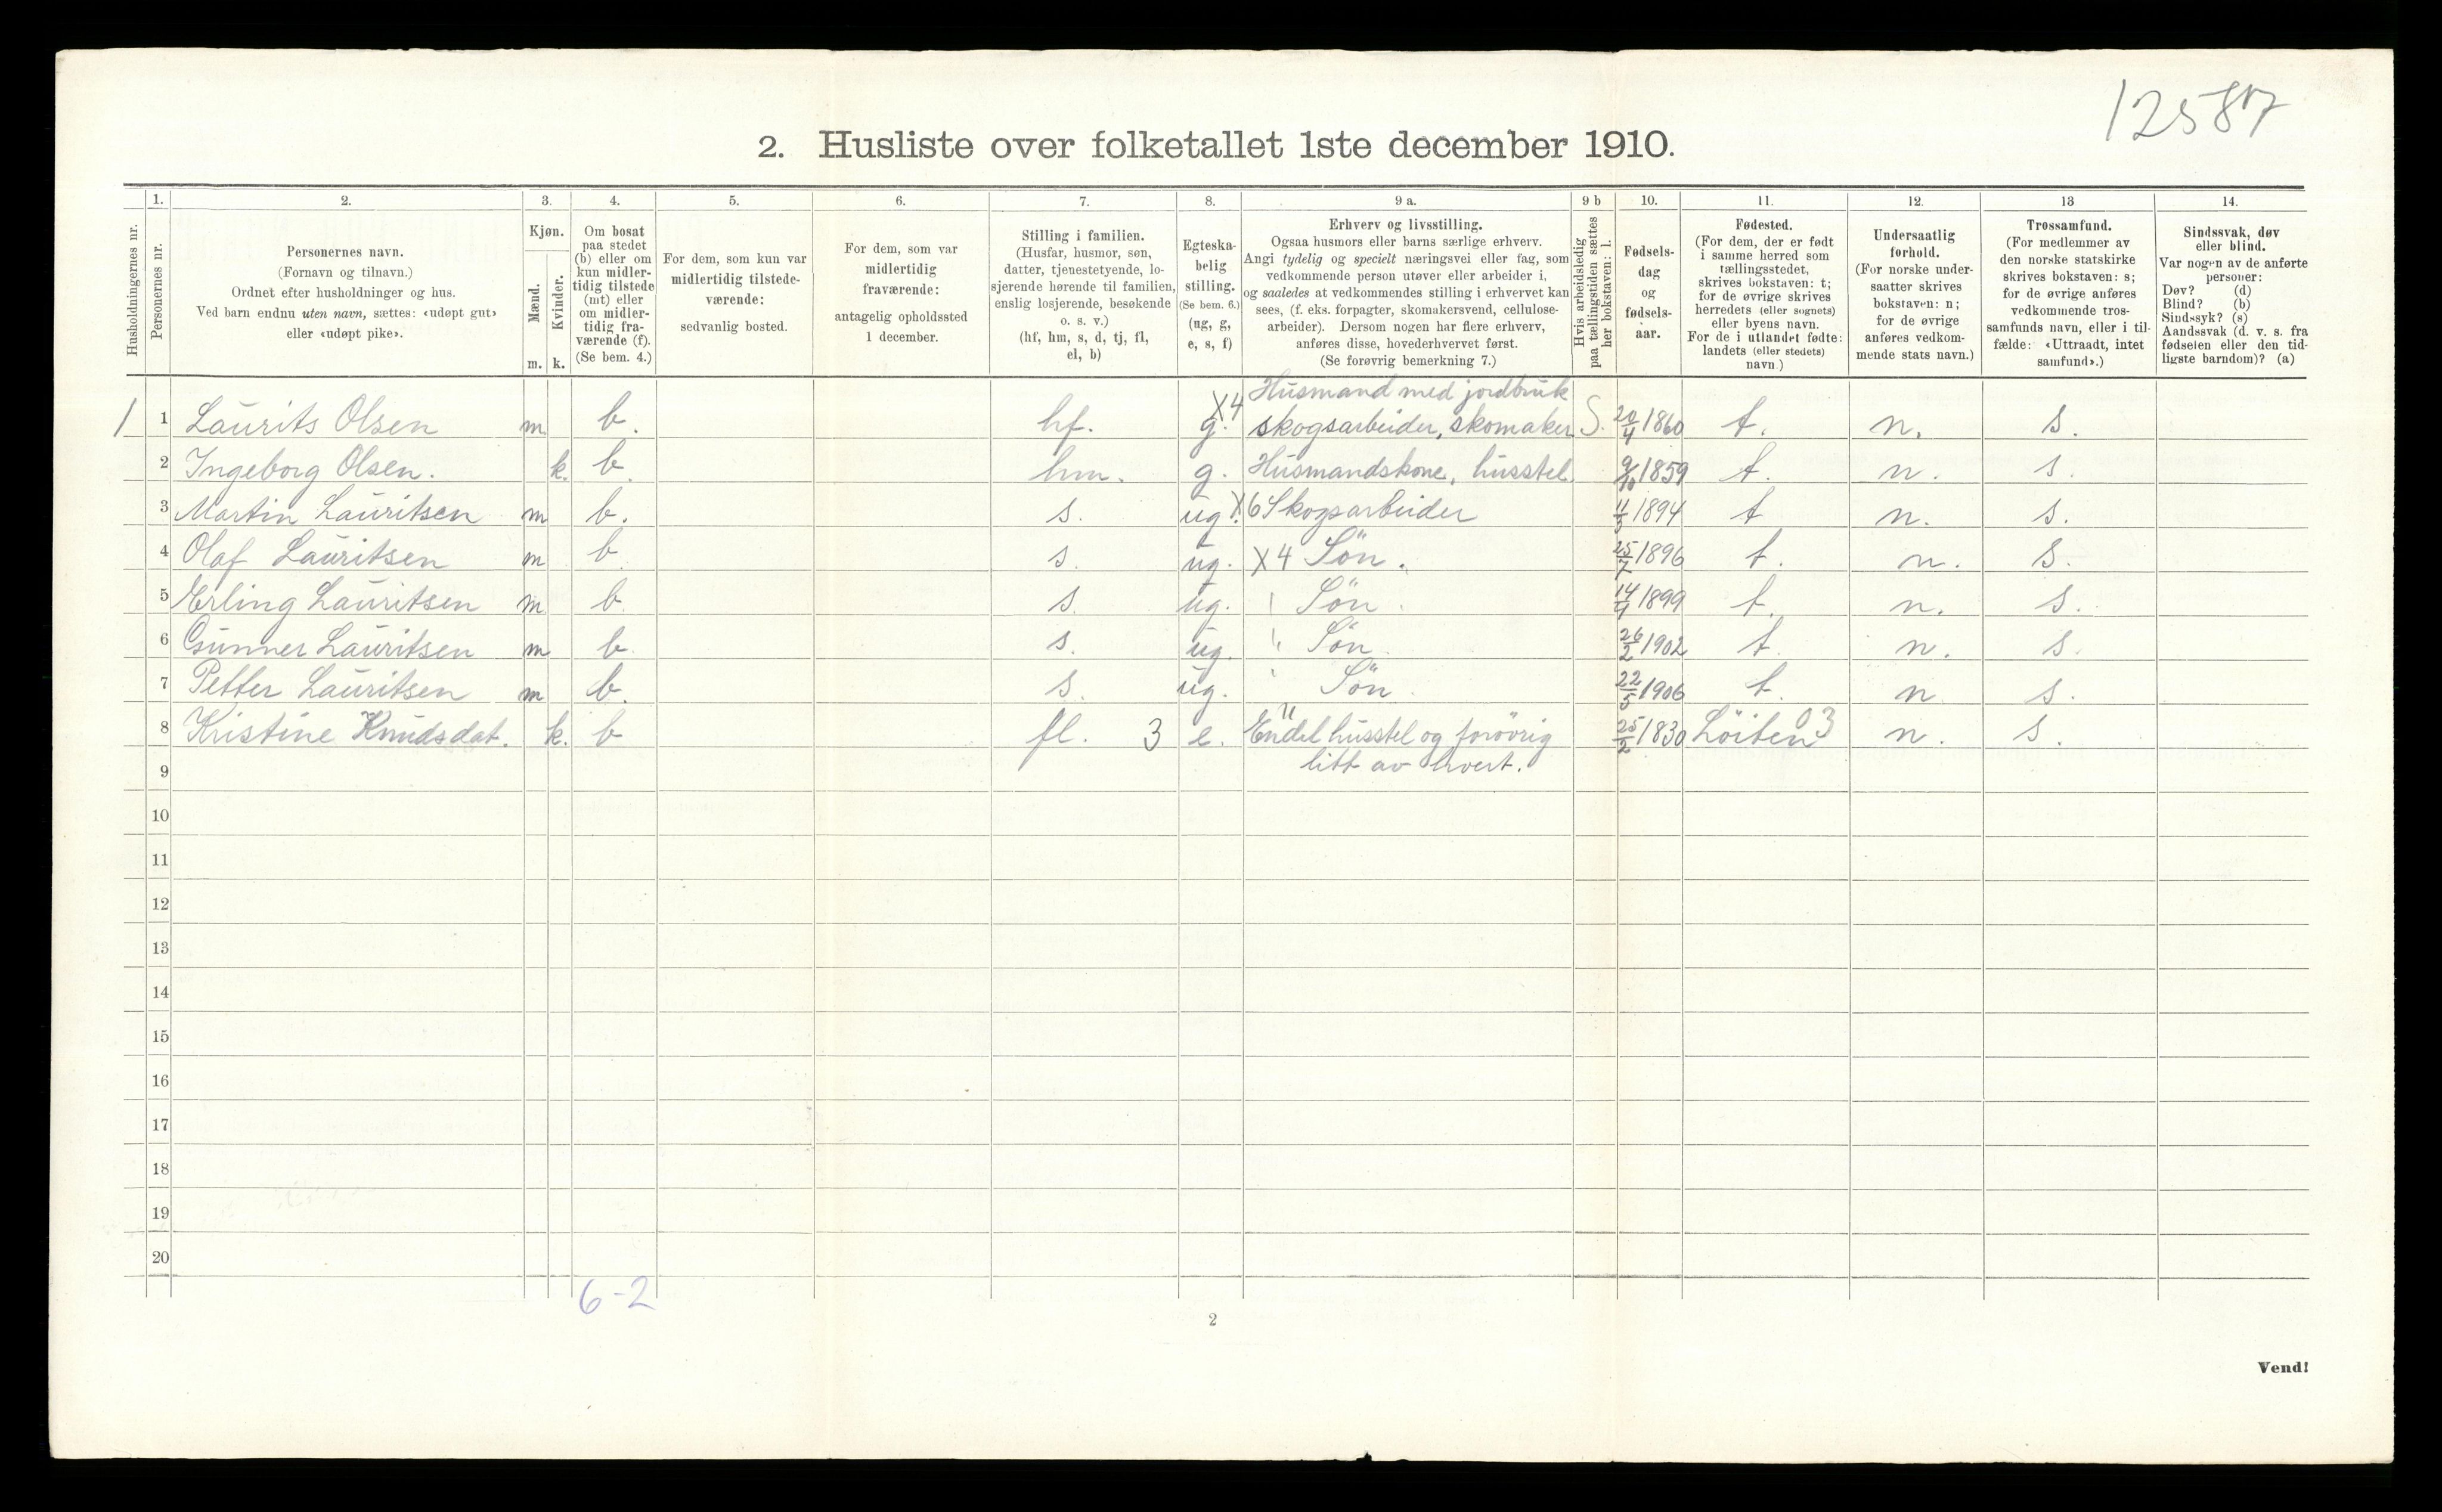 12587
2. Husliste over folketallet 1ste december 1910.
Husholdningernes nr.
1.
Personernes nr.
2.
Personernes navn.
(Fornavn og tilnavn.)
Ordnet efter husholdninger og hus.
Ved barn endnu uten navn, sættes: «udøpt gut»
eller «udøpt pike».
3.
Kjøn.
Mænd.
Kvinder.
m. k.
4.
Om bosat
paa stedet
(b) eller om
kun midler-
tidig tilstede
(mt) eller
om midler-
tidig fra-
værende (f).
(Se bem. 4.)
5.
For dem, som kun var
midlertidig tilstede-
værende:
sedvanlig bosted.
6.
For dem, som var
midlertidig
fraværende:
antagelig opholdssted
1 december.
7.
Stilling i familien.
(Husfar, husmor, søn,
datter, tjenestetyende, lo-
sjerende hørende til familien,
enslig losjerende, besøkende
o. s. v.)
(hf, hm, s, d, tj, fl,
el, b)
8.
Egteska-
belig
stilling.
(Se bem. 6.)
(ug, g,
e, s, f)
9 a.
Erhverv og livsstilling.
Ogsaa husmors eller barns særlige erhverv.
Angi tydelig og specielt næringsvei eller fag, som
vedkommende person utøver eller arbeider i,
og saaledes at vedkommendes stilling i erhvervet kan
sees, (f. eks. forpagter, skomakersvend, cellulose-
arbeider). Dersom nogen har flere erhverv,
anføres disse, hovederhvervet først.
(Se forøvrig bemerkning 7.)
9 b
Hvis arbeidsledig
paa tællingstiden sættes
her bokstaven: l.
10.
Fødsels-
dag
og
fødsels-
aar.
11.
Fødested.
(For dem, der er født
i samme herred som
tællingsstedet,
skrives bokstaven: t;
for de øvrige skrives
herredets (eller sognets)
eller byens navn.
For de i utlandet fødte:
landets (eller stedets)
navn.)
12.
Undersaatlig
forhold.
(For norske under-
saatter skrives
bokstaven: n;
for de øvrige
anføres vedkom-
mende stats navn.)
13
Trossamfund.
(For medlemmer av
den norske statskirke
skrives bokstaven: s;
for de øvrige anføres
vedkommende tros-
samfunds navn, eller i til-
fælde: «Uttraadt, intet
samfund».)
14.
Sindssvak, døv
eller blind.
Var nogen av de anførte
personer:
Døv? (d)
Blind? (b)
Sindssyk? (s)
Aandssvak (d. v. s. fra
fødselen eller den tid-
ligste barndom)? (a)
X4 Husmand med jordbruk
1 1 Laurits Olsen m b. hf. g. skogsarbeider, skomaker S. 20/4 1860 t. n. s.
2 Ingeborg Olsen. k. b. hm. g. Husmandskone, husstel 9/10 1859 t. n. s.
3 Martin Lauritsen m b. s. ug. X6 Skogsarbeider 11/5 1894 t n. s.
4 Olaf Lauritsen m b s. ug. X4 Sön. 25/7 1896 t. n. s.
5 Erling Lauritsen m b. s. ug. " Sön. 14/4 1899 t. n. s.
6 Gunner Lauritsen m b. s. ug. " Sön. 26/2 1902 t. n. s.
7 Petter Lauritsen m b. s. ug. " Sön. 22/5 1906 t. n s.
8 Kristine Knudsdat. k. b fl. 3 e. Endel husstel og forövrig 25/2 1830 Löiten 03 n. s.
litt av hvert.
9
10
11
12
13
14
15
16
17
18
19
20
6-2
2
Vend!